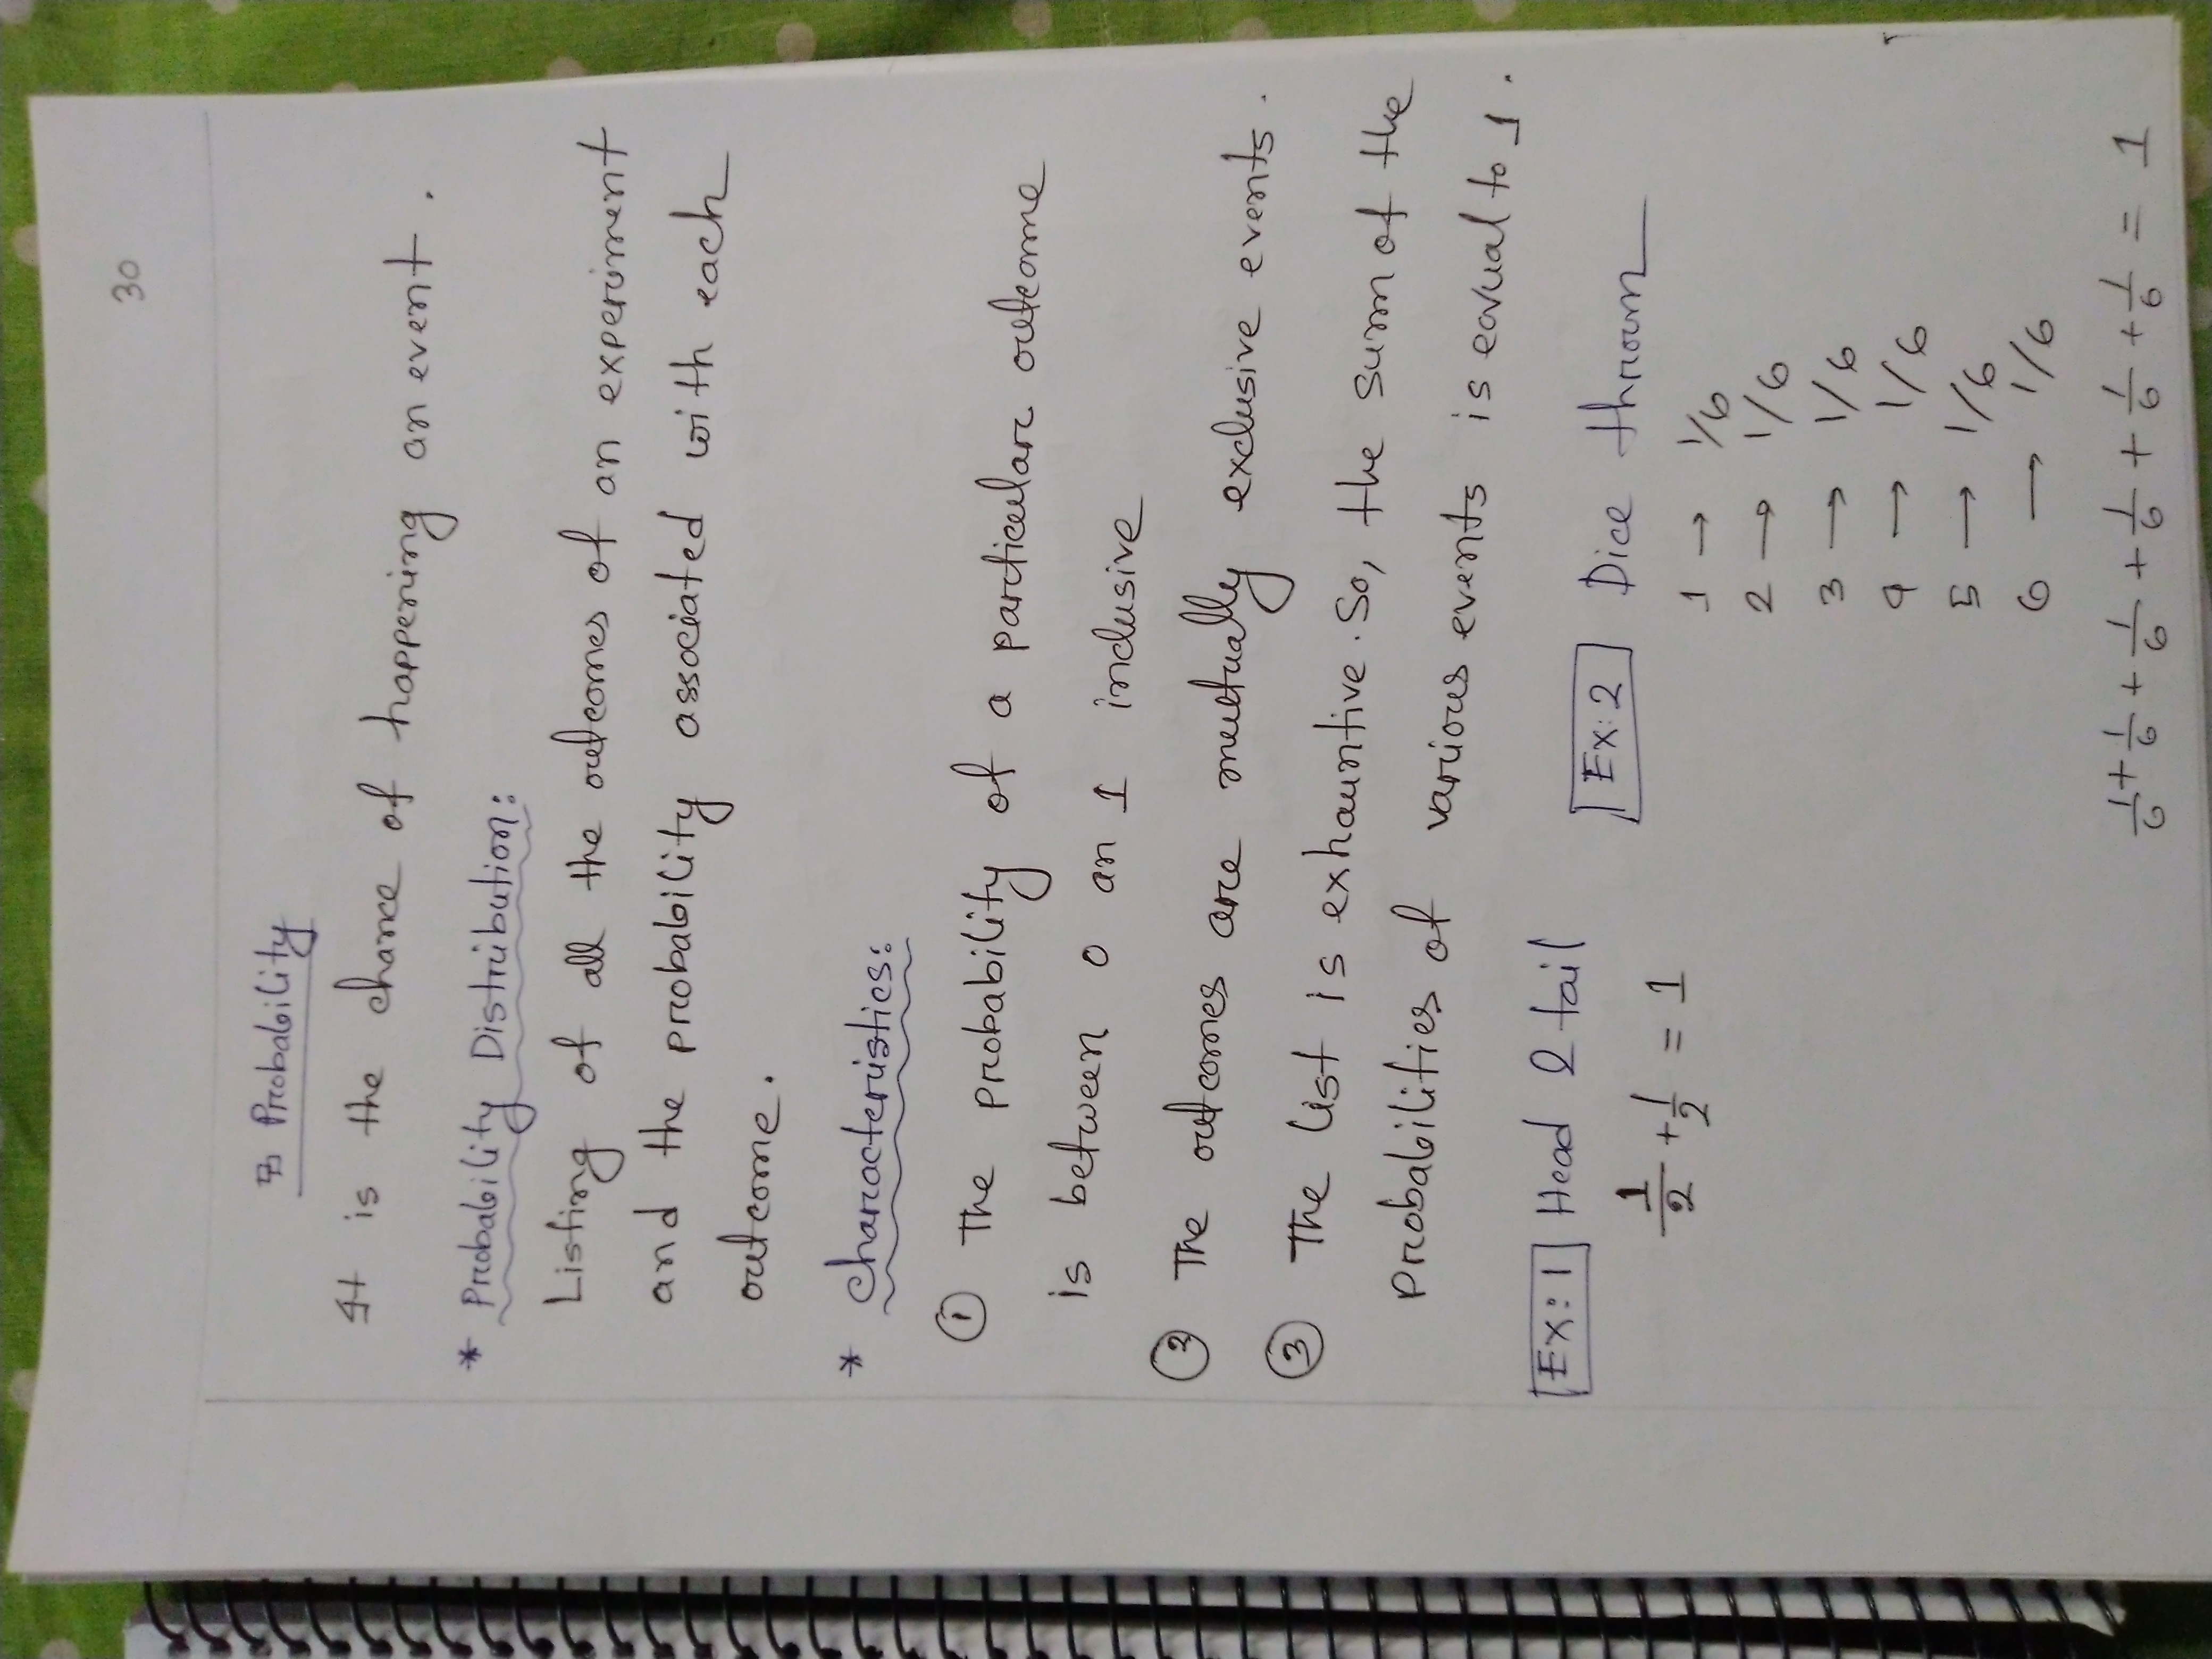 30
Probability
It is the chance of happening an event.
* Probability Distribution:
Listing of all the outcomes of an experiment
and the probability associated with each
outcome.
* Characteristics:
① The probability of a particular outcome
is between 0 an 1 inclusive
② The outcomes are mutually exclusive events.
③ The list is exhauntive. So, the sum of the
probabilities of various events is equal to 1.
Ex: 1 Head & tail
1/2 + 1/2 = 1
Ex: 2 Dice thrown
1 → 1/6
2 → 1/6
3 → 1/6
4 → 1/6
5 → 1/6
6 → 1/6
1/6 + 1/6 + 1/6 + 1/6 + 1/6 + 1/6 = 1